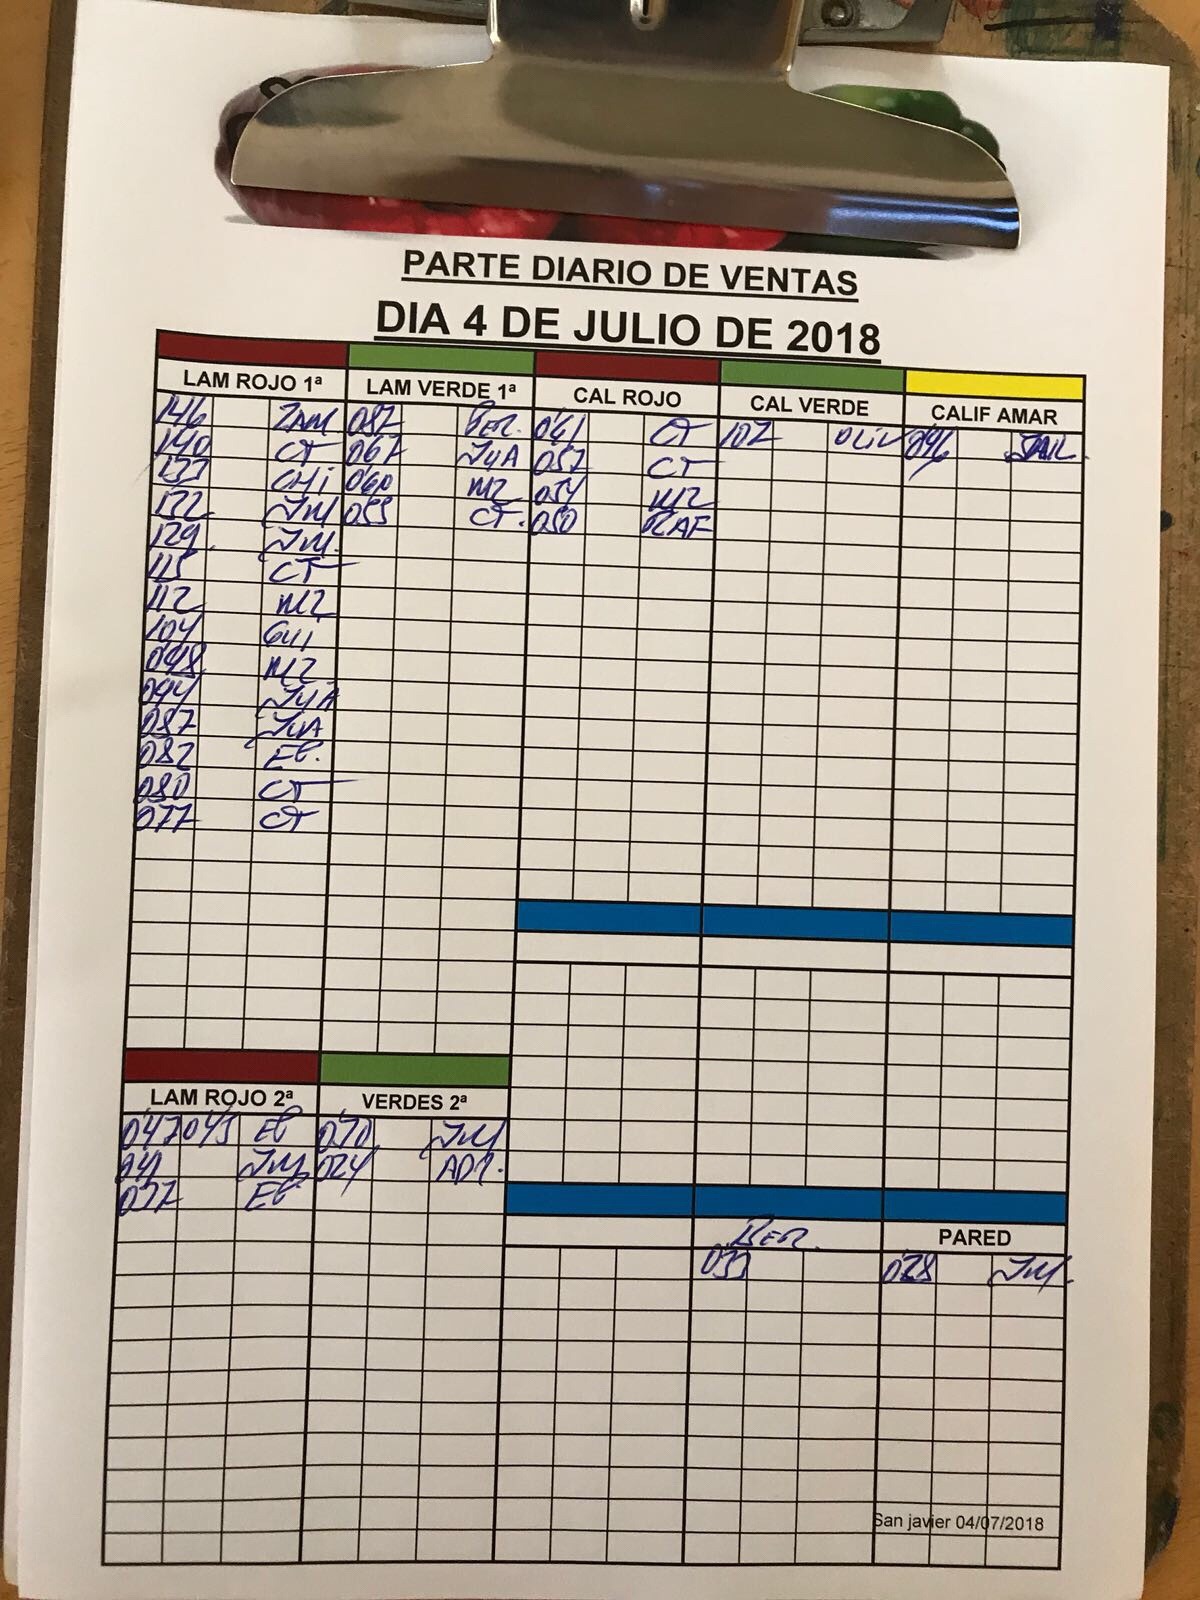 PARTE DIARIO DE VENTAS
DIA 4 DE JULIO DE 2018
LAM ROJO 1ª LAM VERDE 1ª CAL ROJO CAL VERDE CALIF AMAR
146 ZAM 087 BER. 061 CT 107 OLIV 096 JAR
140 CT 067 JYA 057 CT
133 CHI 060 MZ 054 MZ
132 JM 055 CT. 050 RAF
129 JM.
115 CT
112 MZ
104 GUI
098 MZ
094 JYA
087 JYA
082 EG.
080 CT
077 CT
LAM ROJO 2ª VERDES 2ª
047 045 EG 030 JM
041 JM 024 ADR.
037 EG
BER. PARED
033 028 JM.
San javier 04/07/2018